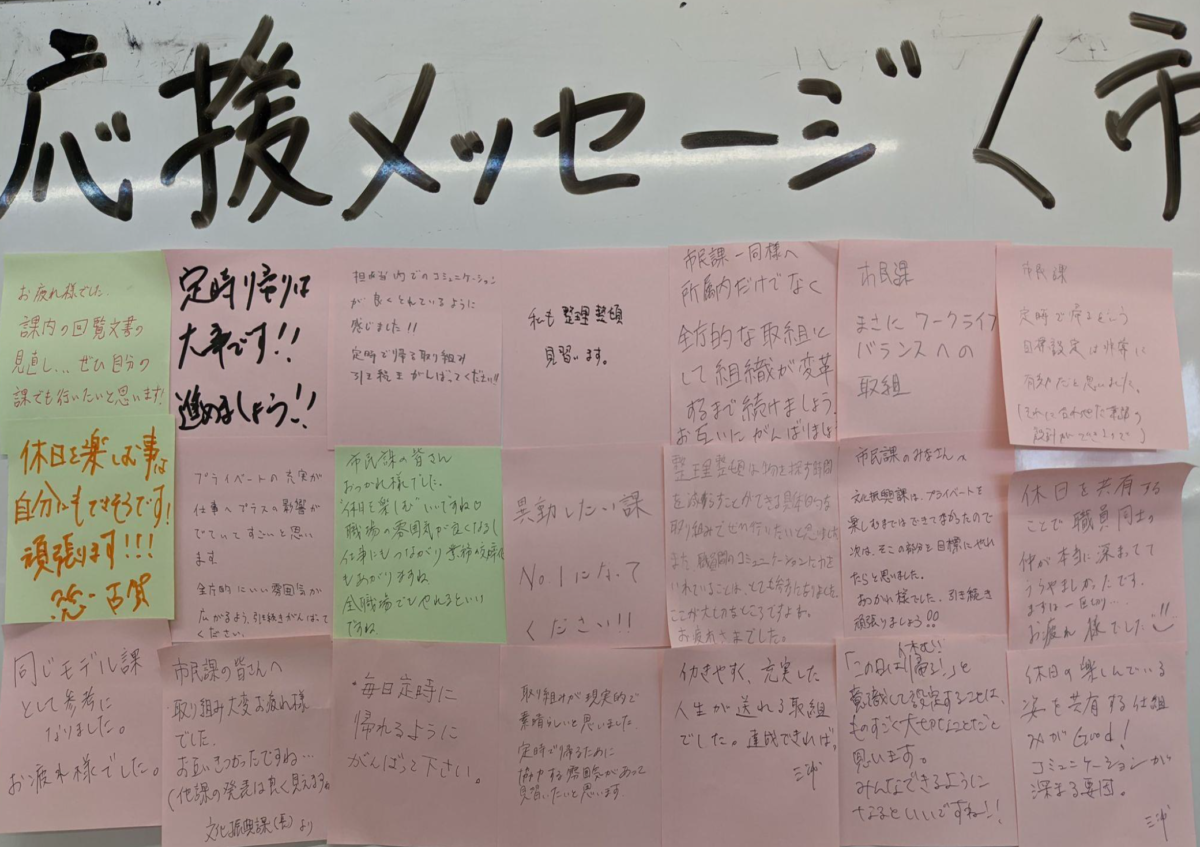 応援メッセージ〈市
お疲れ様でした。
課内の回覧文書の
見直し...ぜひ自分の
課でも行いたいと思います!
定時り帰りは
大事です!!
進めましょう!!
担当内でのコミュニケーション
が良くとれているように
感じました!!
定時で帰る取り組み
引き続きがんばってください!!
私も整理整頓
見習います。
市民課一同様へ
所属内だけでなく
全庁的な取組と
して組織が変革
するまで続けましょう。
お互いにがんばりましょ
市民課
まさにワークライフ
バランスへの
取組
市民課
定時で帰るという
目標設定は非常に
有効だと思いました。
休日を楽しむ事は
自分にもできそうです!
頑張ります!!!
古賀
プライベートの充実が
仕事へプラスの影響が
でていてすごいと思い
ます。
全庁的にいい雰囲気が
広がるよう、引き続きがんばって
ください。
市民課の皆さん
おつかれ様でした。
休日を楽しむ いいですね♡
職場の雰囲気が良くなるし
仕事にもつながり業務の効率化
もあがりますね
全職場でもやれるといい
ですね
異動したい課
No.1になって
ください!!
整理整頓は物を探す時間
を減らすことができる具体的な
取り組みでぜひ行いたいと思いました
また、職員間のコミュニケーションに力を
いれていることは、とても参考になりました。
ここが大切なところですよね。
お疲れさまでした。
市民課のみなさんへ
文化振興課は、プライベートを
楽しむまではできてなかったので
次は、そこの部分を目標にやれ
たらと思いました。
おつかれ様でした。引き続き
頑張りましょう!!
休日を共有する
ことで職員同士の
仲が本当に深まってて
うらやましかったです。
まずは一区切り...
お疲れ様でした!!
同じモデル課
として参考に
なりました。
お疲れ様でした。
市民課の皆さんへ
取り組み大変お疲れ様
でした。
お互いきつかったですね…
(他課の発表は良く見えますね
文化振興課(長)より
・毎日定時に
帰れるように
がんばって下さい。
取り組みが現実的で
素晴らしいと思いました
定時で帰るために
協力する雰囲気があって
見習いたいと思います。
働きやすく、充実した
人生が送れる取組
でした。達成できれば。
三浦
「この日は休む!帰る!」と
意識して設定することは、
ものすごく大切なことだと
思います。
みんなできるように
なるといいですね!!
休日の楽しんでいる
姿を共有する仕組
みがGood!
コミュニケーションが
深まる要因。
三浦